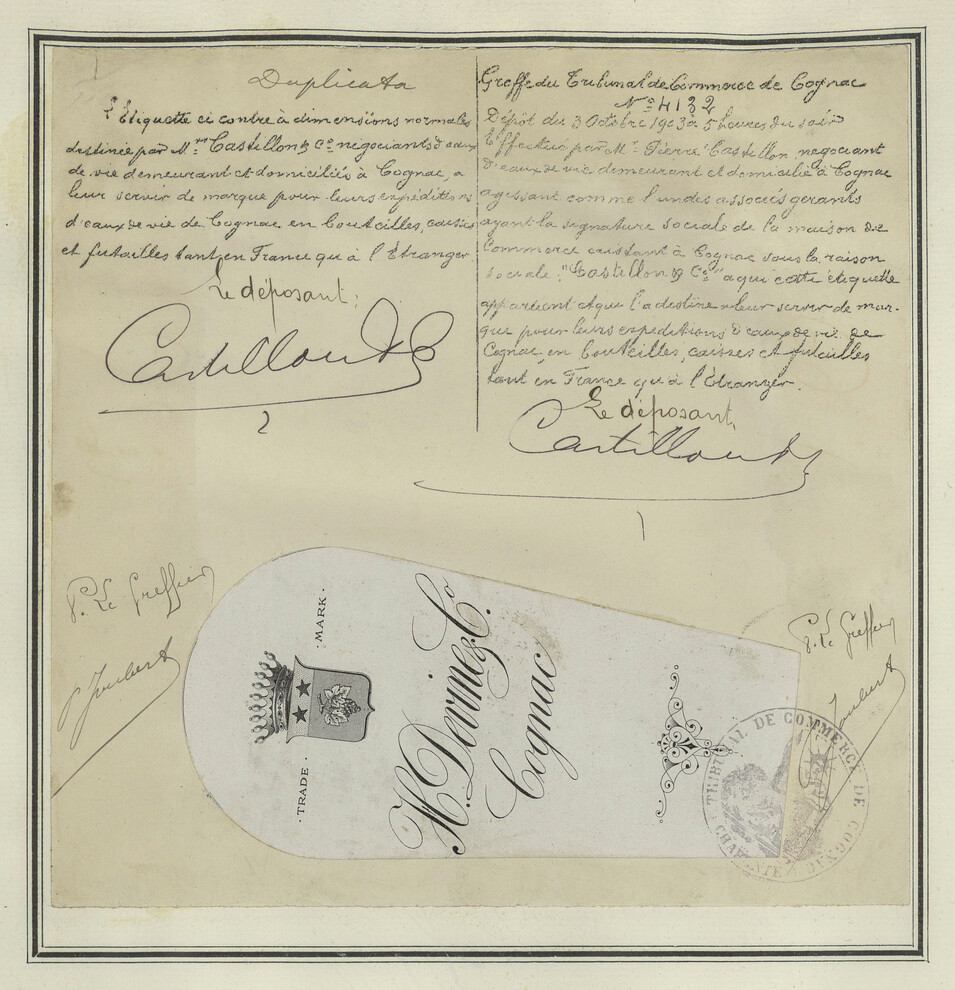 Duplicata
L'Etiquette ci contre à dimensions normales
destinée par Mrs Castillon & Co négociants d'eaux
de vie demeurant et domiciliés à Cognac, a
leur servir de marque pour leurs expéditions
d'eaux de vie de Cognac en bouteilles, caisses
et futailles tant en France qu'à l'Étranger
Le déposant:
Castillon & Co
2
Greffe du Tribunal de Commerce de Cognac
No 4132
Dépôt du 3 Octobre 1903 à 5 heures du soir
Effectué par Mr Pierre Castillon, négociant
d'eaux de vie demeurant et domicilié à Cognac
agissant comme l'un des associés gérants
ayant la signature sociale de la maison de
Commerce existant à Cognac sous la raison
sociale: "Castillon & Co" a qui cette étiquette
appartient et qui l'a destine a leur servir de mar-
que pour leurs expéditions d'eaux de vie de
Cognac en bouteilles, caisses et futailles
tant en France qu'à l'Étranger.
Le déposant,
Castillon &
1
P. Le Greffier
Joubert
P. Le Greffier
Joubert
· TRADE · MARK ·
H. Devine & Co.
Cognac
TRIBUNAL DE COMMERCE DE COGNAC
CHARENTE